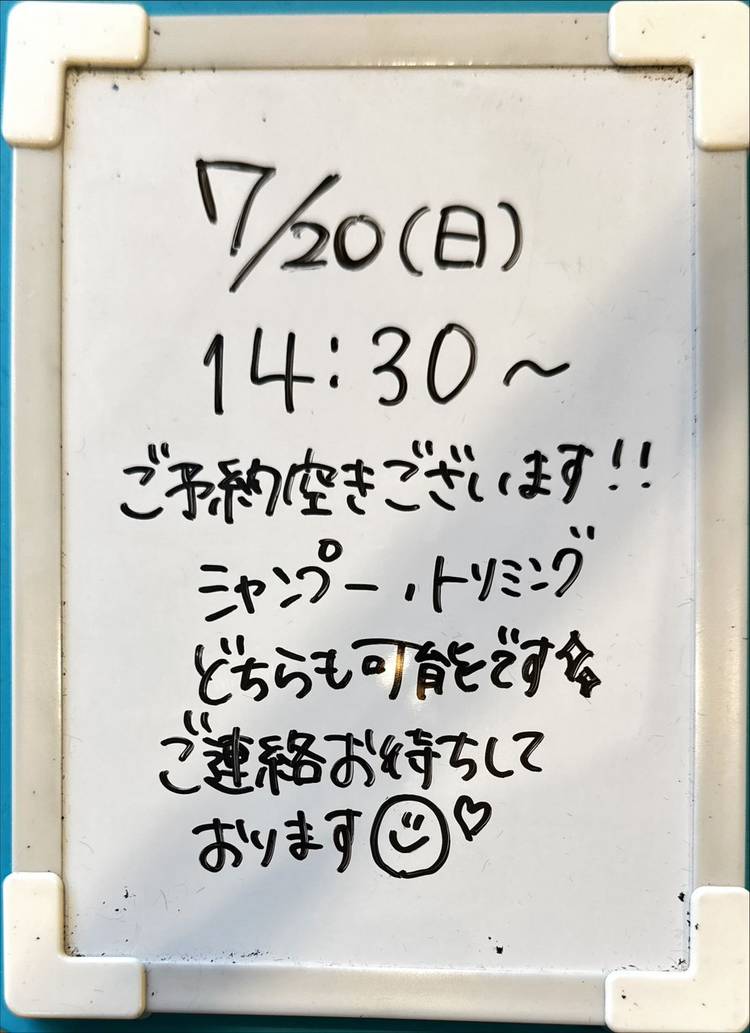 7/20(日)
14:30〜
ご予約空きございます!!
シャンプー、トリミング
どちらも可能です✨
ご連絡お待ちして
おります☺♡